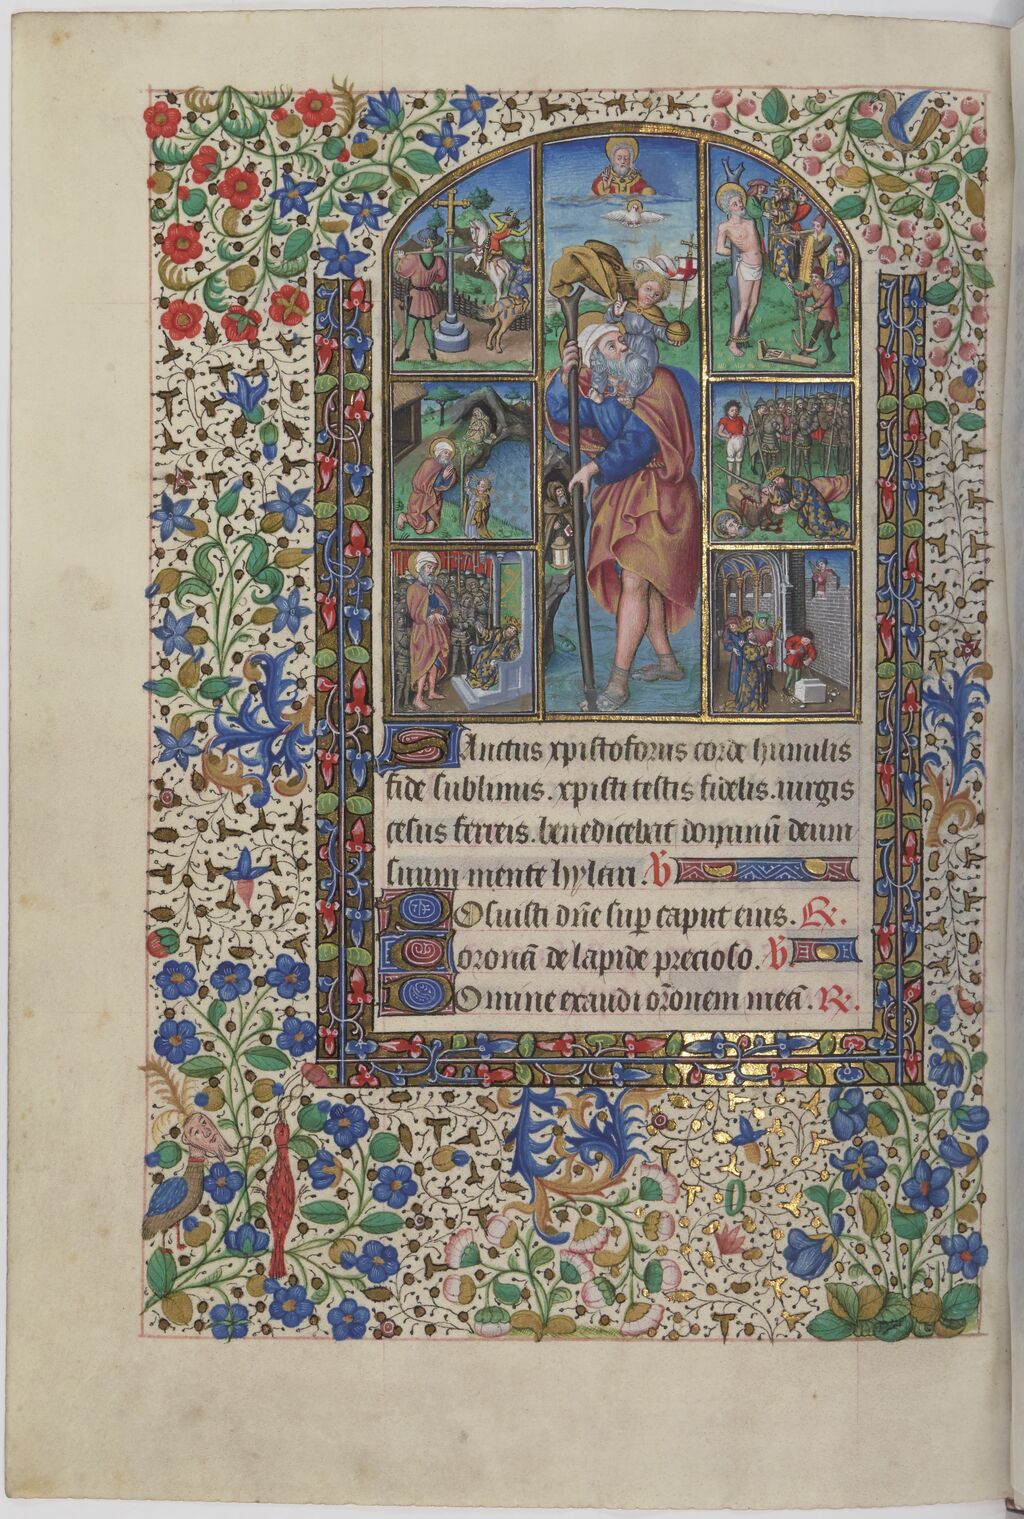 Sanctus xpistoforus corde humilis
fide sublimis. xpisti testis fidelis. uirgis
cesus ferreis. benedicebat dominū deum
suum mente hylari. V
Posuisti dn̄e sup̄ caput eius. R.
Coronā de lapide precioso. V
Domine exaudi or̄onem meā. R.